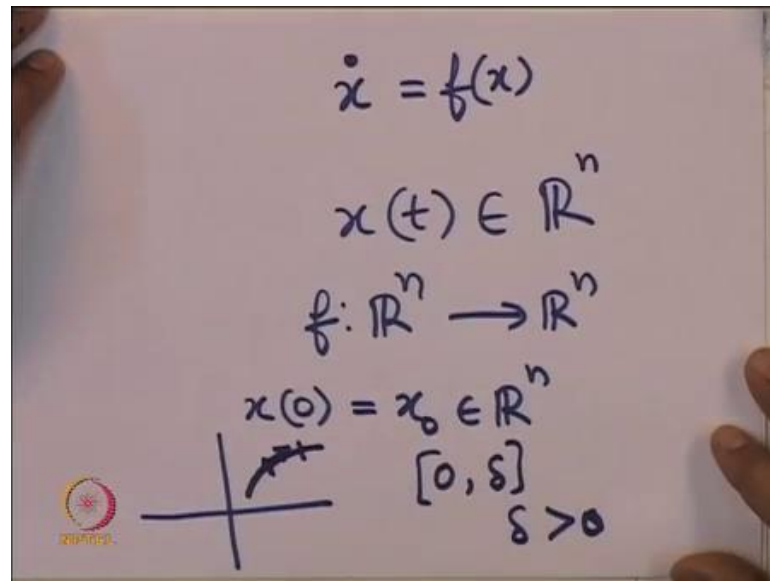 ẋ = f(x)
x(t) ∈ ℝⁿ
f: ℝⁿ → ℝⁿ
x(0) = x₀ ∈ ℝⁿ
[0, δ]
δ > 0
NPTEL